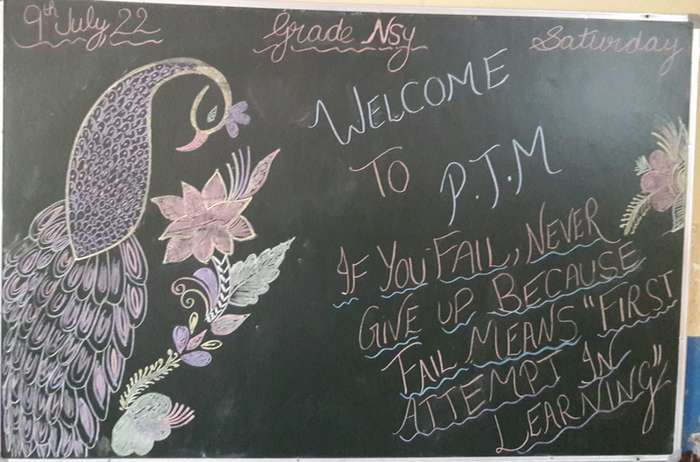 9th July 22
Grade Nsy
Saturday
WELCOME
TO P.T.M
IF YOU FAIL, NEVER
GIVE UP BECAUSE
FAIL MEANS "FIRST
ATTEMPT IN
LEARNING"